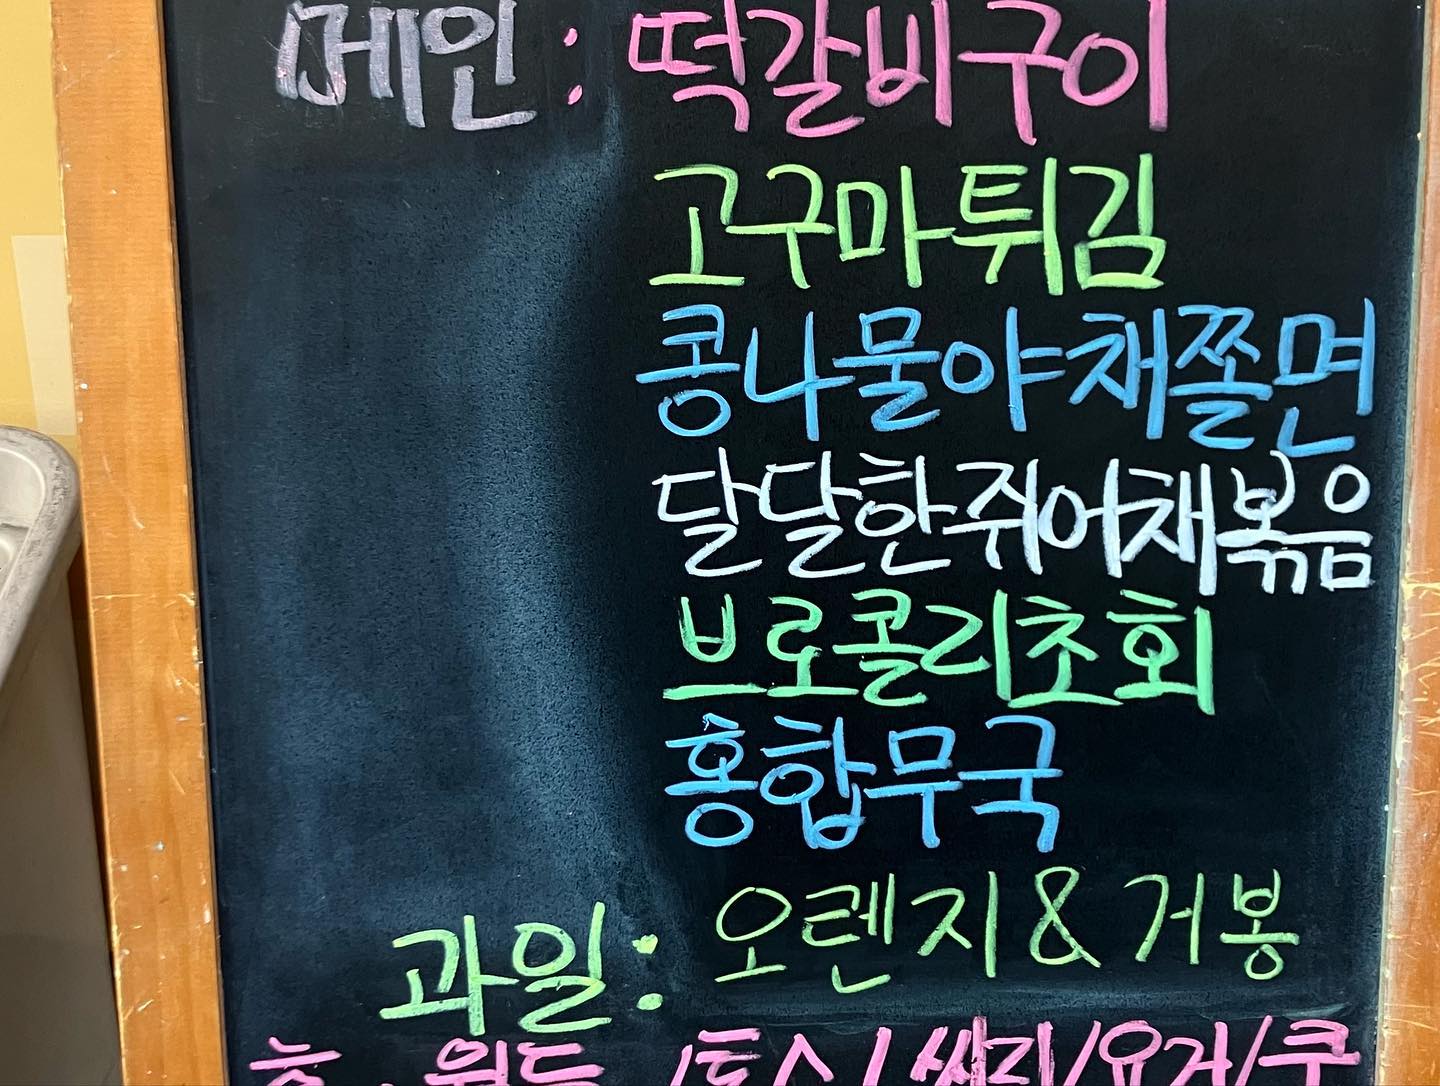 메인 : 떡갈비구이
고구마튀김
콩나물야채쫄면
달달한쥐어채볶음
브로콜리초회
홍합무국
과일: 오렌지 & 거봉